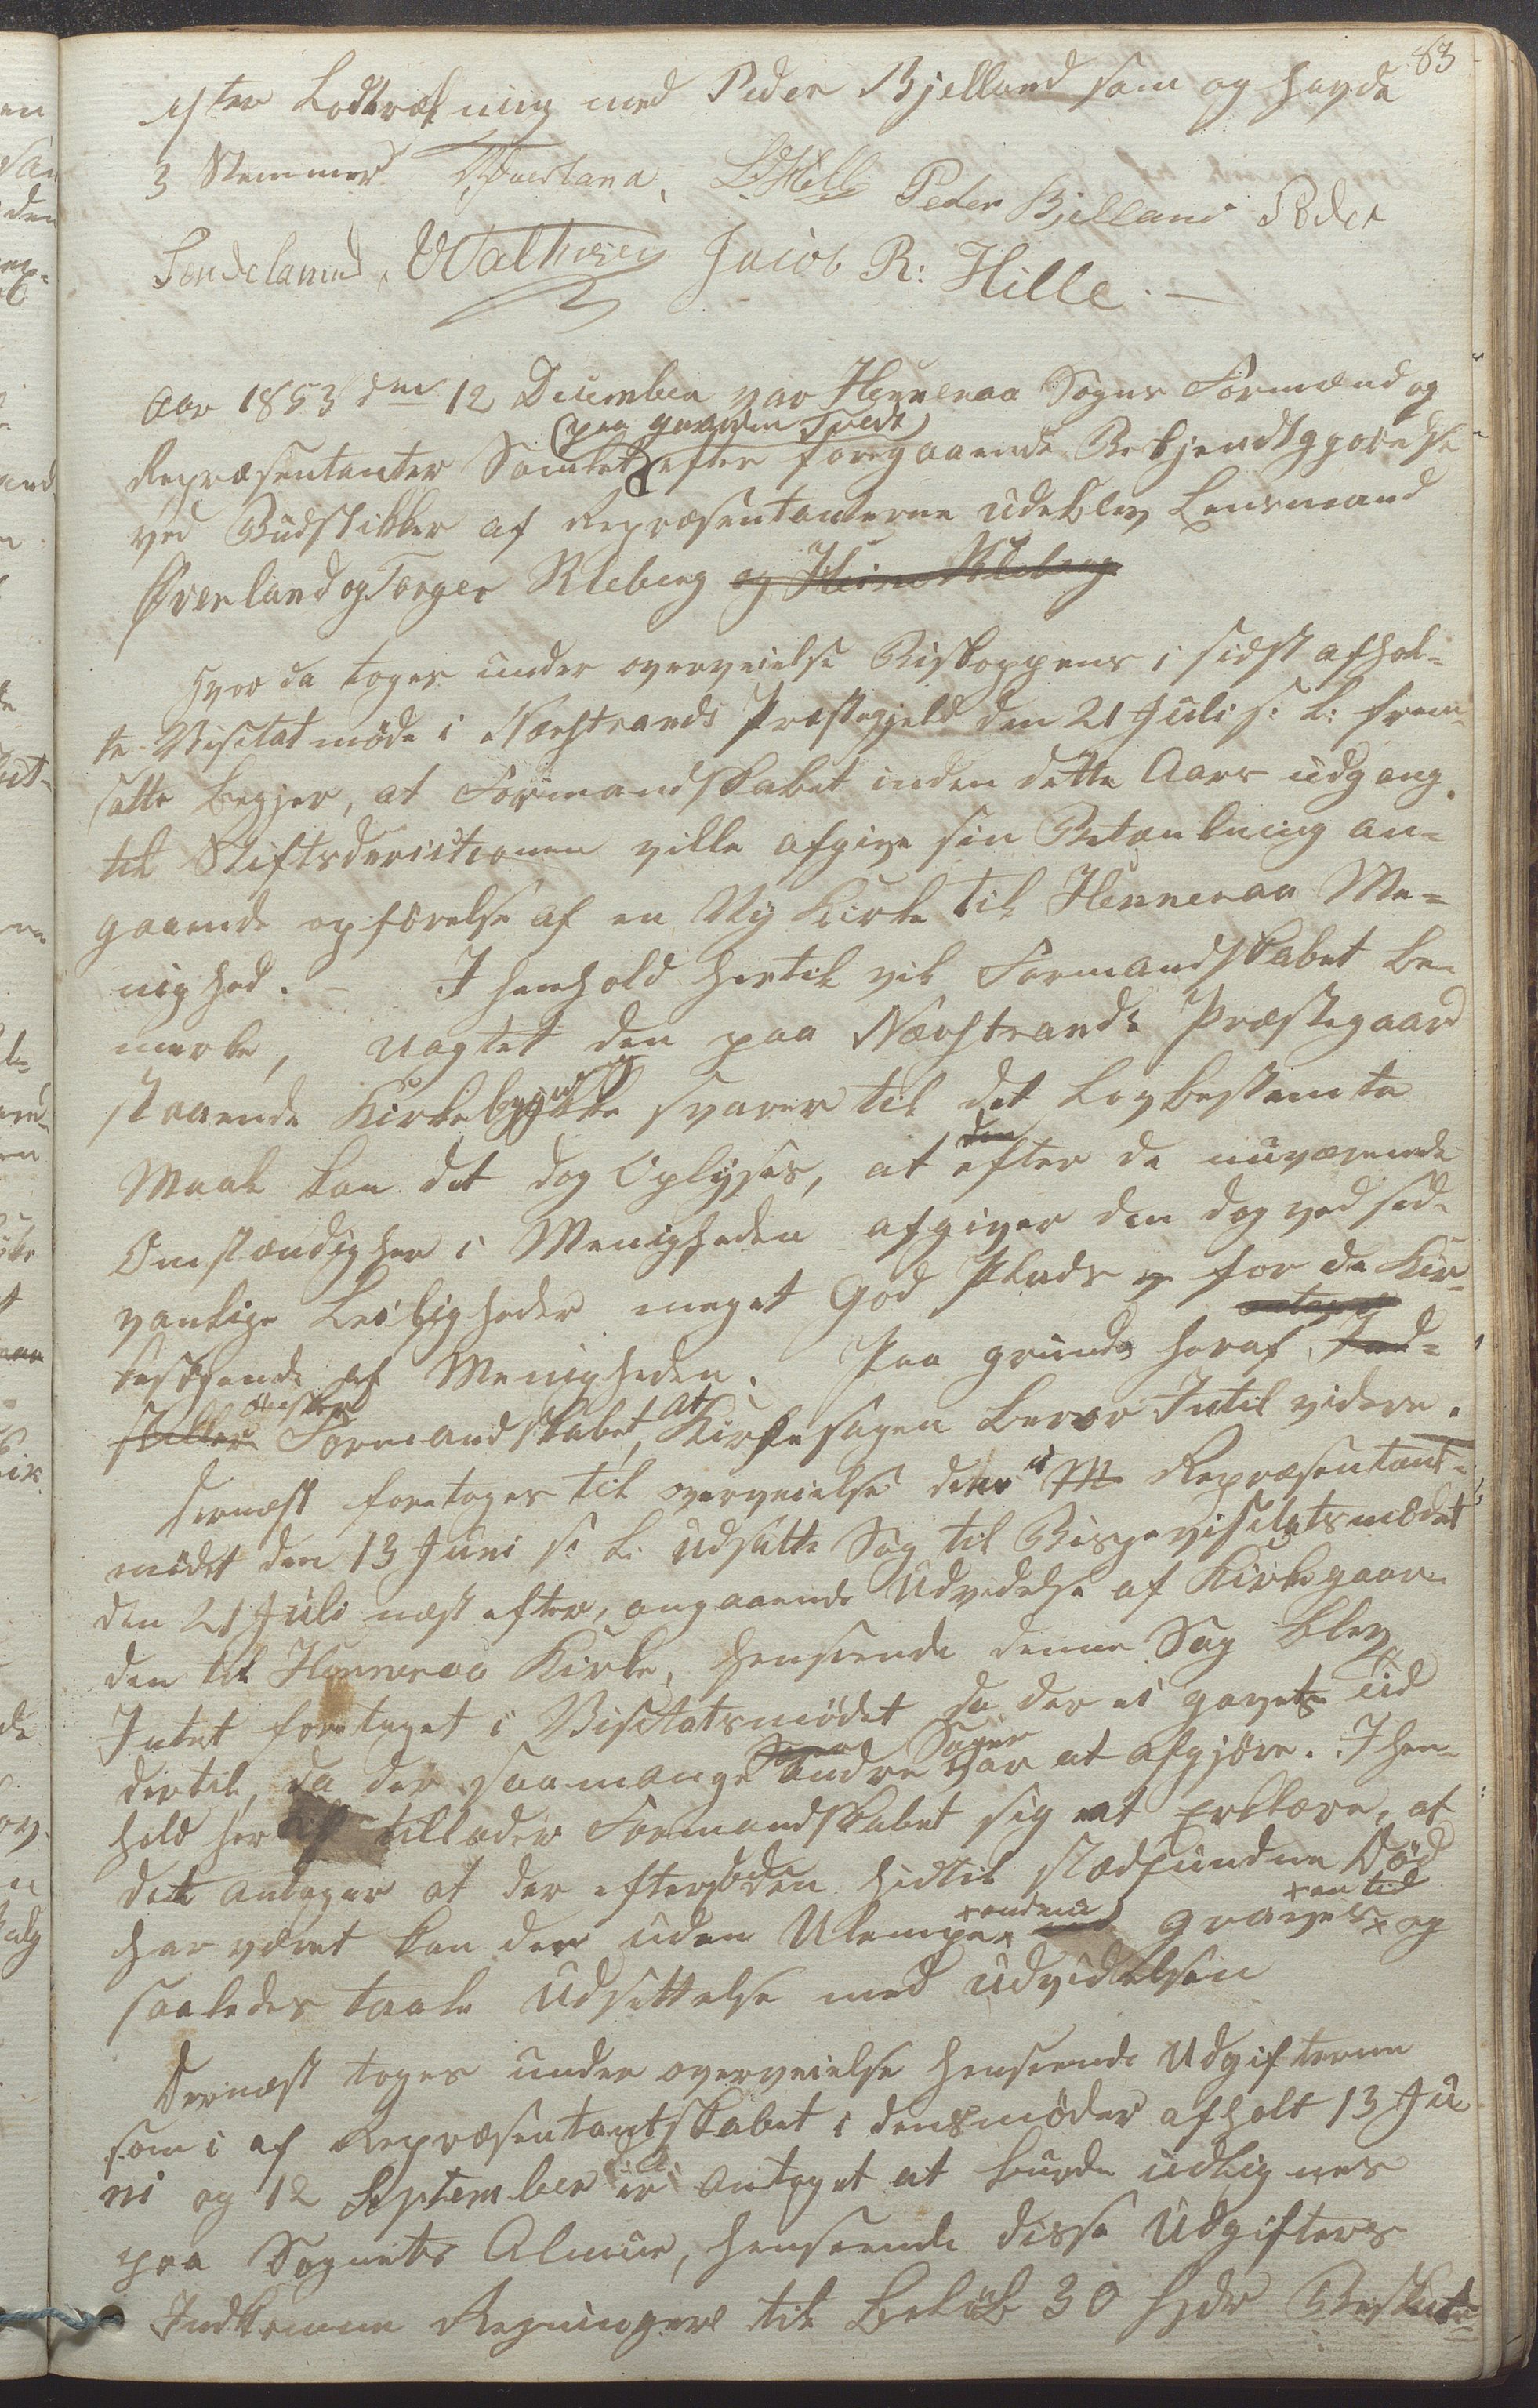 83
efter Lodtrækning med Peder Bjelland som og havde
3 Stemmer Peder Bjelland Peder
Sondeland. Jacob R: Hille. —
Aar 1853 den 12 December var Hinneraa Sogns Formænd og
(paa gaarden Tvedt)
Repræsentanter Samlet efter foregaaende Bekjendtgjørelse
ved Budstikker af Repræsentanterne udeblev Lensmand
Øverland og Torger Kleberg og Kleberg
hvor da toges under overveielse Biskoppens i sidst afhol-
te Visitatmøde i Nærstrands Præstegjeld den 21 Juli s: A: frem-
satte begjær, at Formandskabet inden dette Aars udgang
til Stiftsdirectionen ville afgive sin Betænkning an-
gaaende opførelse af en Ny Kirke til Hinneraa Me-
nighed. – I henhold hertil vil Formandskabet be-
mærke, uagtet den paa Nærstrands Præstegaard
staaende Kirkebygning ikke svarer til det Lovbestemte
Maal kan det dog Oplyses, at den efter de nuværende
Omstændigher i Menigheden afgiver den dog ved sæd-
vanlige Leiligheder meget God Plads for de Kir-
kesøgende af Menigheden. Paa grund heraf antages ind-
stiller ønsker Formandskabet, at Kirkesagen beror Intil videre.
Dernæst foretoges til overveielse den i Repræsentant-
mødet den 13 Juni s. A. udsatte Sag til Bispevisitatsmødet
den 21 Juli næst efter, angaaende Udvidelse af Kirkegaar-
den til Hinneraa Kirke, henseende denne Sag blev
Intet foretaget i Visitatsmødet da der ei gaves tid
dertil, da der saamange andre Sager var at afgjøre. I hen-
hold hertil tillader Formandskabet sig at Erklære, at
det antager at der efter siden hidtil stædfundne Død
har været kan der uden Ulempe endnu graves en tid og
saaledes taale Udsættelse med udvidelsen
Dernæst toges under overveielse henseende Udgifterne
som i af Repræsentantskabet i dens møder afholt 13 Ju
ni og 12 September er Antaget at burde udlignes
paa Sognets Almue, henseende disse Udgifters
Indkomne Regninger til Beløb 30 Beslut-